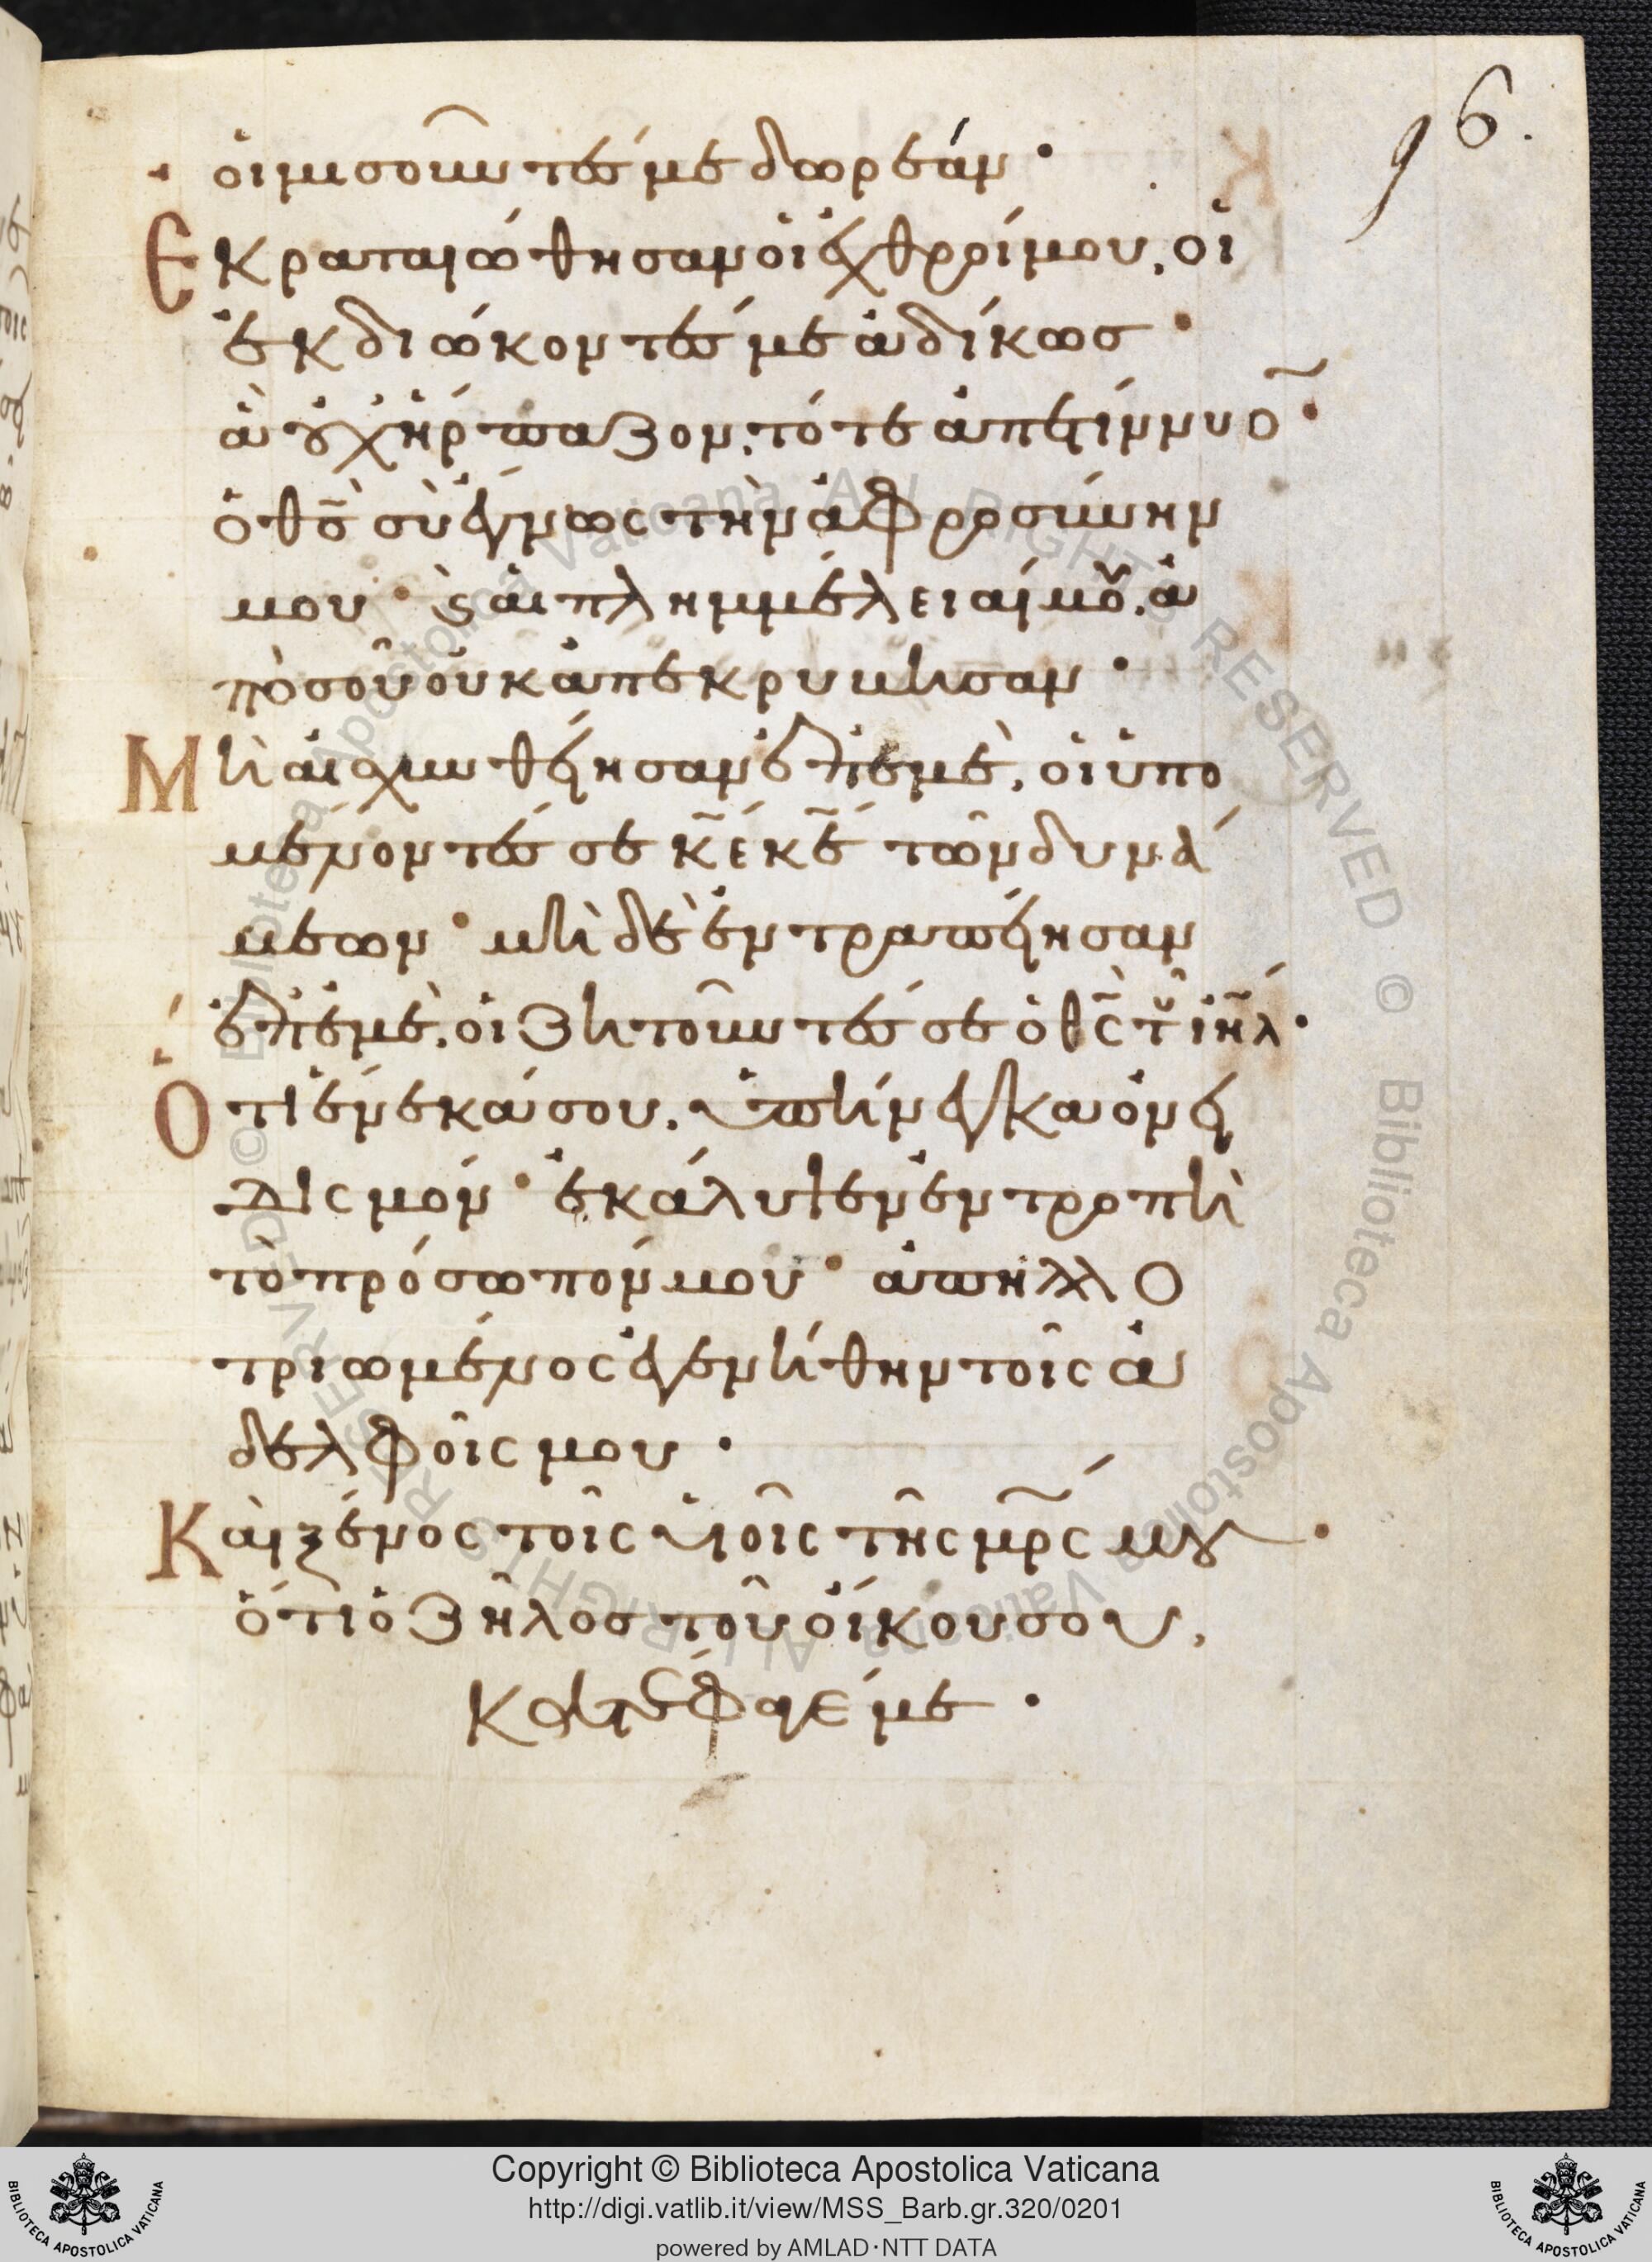 96.
οἱ μισοῦντές με δωρεάν·
Ἐκραταιώθησαν οἱ ἐχθροί μου, οἱ
ἐκδιώκοντές με ἀδίκως·
ἃ οὐχ ἥρπαζον, τότε ἀπετίννυο̃·
ὁ θς̄ σὺ ἔγνως τὴν ἀφροσύνην
μου· ϗ αἱ πλημμέλειαί μου, ἀ
πὸ σοῦ οὐκ ἀπεκρυβησαν·
Μὴ αἰσχυνθείησαν ἐπ' ἐμὲ, οἱ ὑπο
μένοντές σε κ̄ε κ̄ε τῶν δυνά
μεων· μὴ δὲ ἐντραπείησαν
ἐπ' ἐμὲ, οἱ ζητοῦντές σε ὁ θ̄ς τοῦ ιη̄λ·
Ὅτι ἕνεκά σου, ὑπήνεγκα ὀνει
δισμόν· ἐκάλυψεν ἐντροπὴ
τὸ πρόσωπόν μου· ἀπηλλο
τριωμένος ἐγενήθην τοῖς ἀ
δελφοῖς μου·
Καὶ ξένος τοῖς υἱοῖς τῆς μρ̄ς μου·
ὅτι ὁ ζῆλος τοῦ οἴκου σου,
κατέφαγέ με·
Copyright © Biblioteca Apostolica Vaticana
http://digi.vatlib.it/view/MSS_Barb.gr.320/0201
powered by AMLAD·NTT DATA
BIBLIOTECA APOSTOLICA VATICANA
BIBLIOTECA APOSTOLICA VATICANA